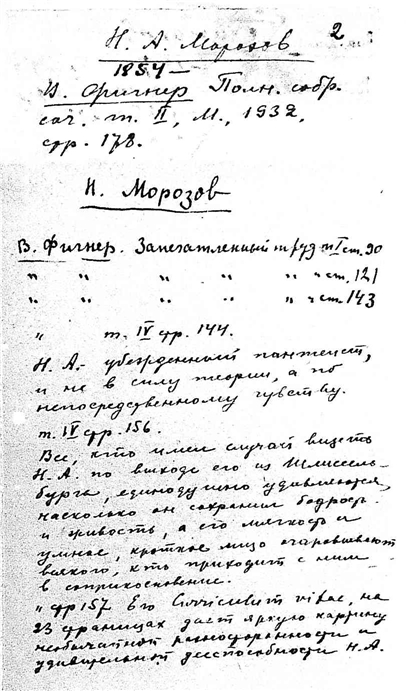 2
Н. А. Морозов
1854 —
В. Фигнер Полн. собр.
соч. т. II, М., 1932,
стр. 178.
Н. Морозов
В. Фигнер. Запечатленный труд т I ст. 90
" " " " " " ст. 121
" " " " " " ст. 143
" т. IV стр. 144.
Н. А. - убежденный пантеист,
и не в силу теории, а по
непосредственному чувству.
т. IV стр. 156.
Все, кто имел случай видеть
Н. А. по выходе его из Шлиссель-
бурга, единодушно удивляются,
насколько он сохранил бодрость
и живость, а его мягкость и
умное, кроткое лицо очаровывают
всякого, кто приходит с ним
в соприкосновение.
" стр 157 Его Curriculum vitae, на
23 страницах дает яркую картину
необычайной разносторонности и
удивительной дееспособности Н. А.